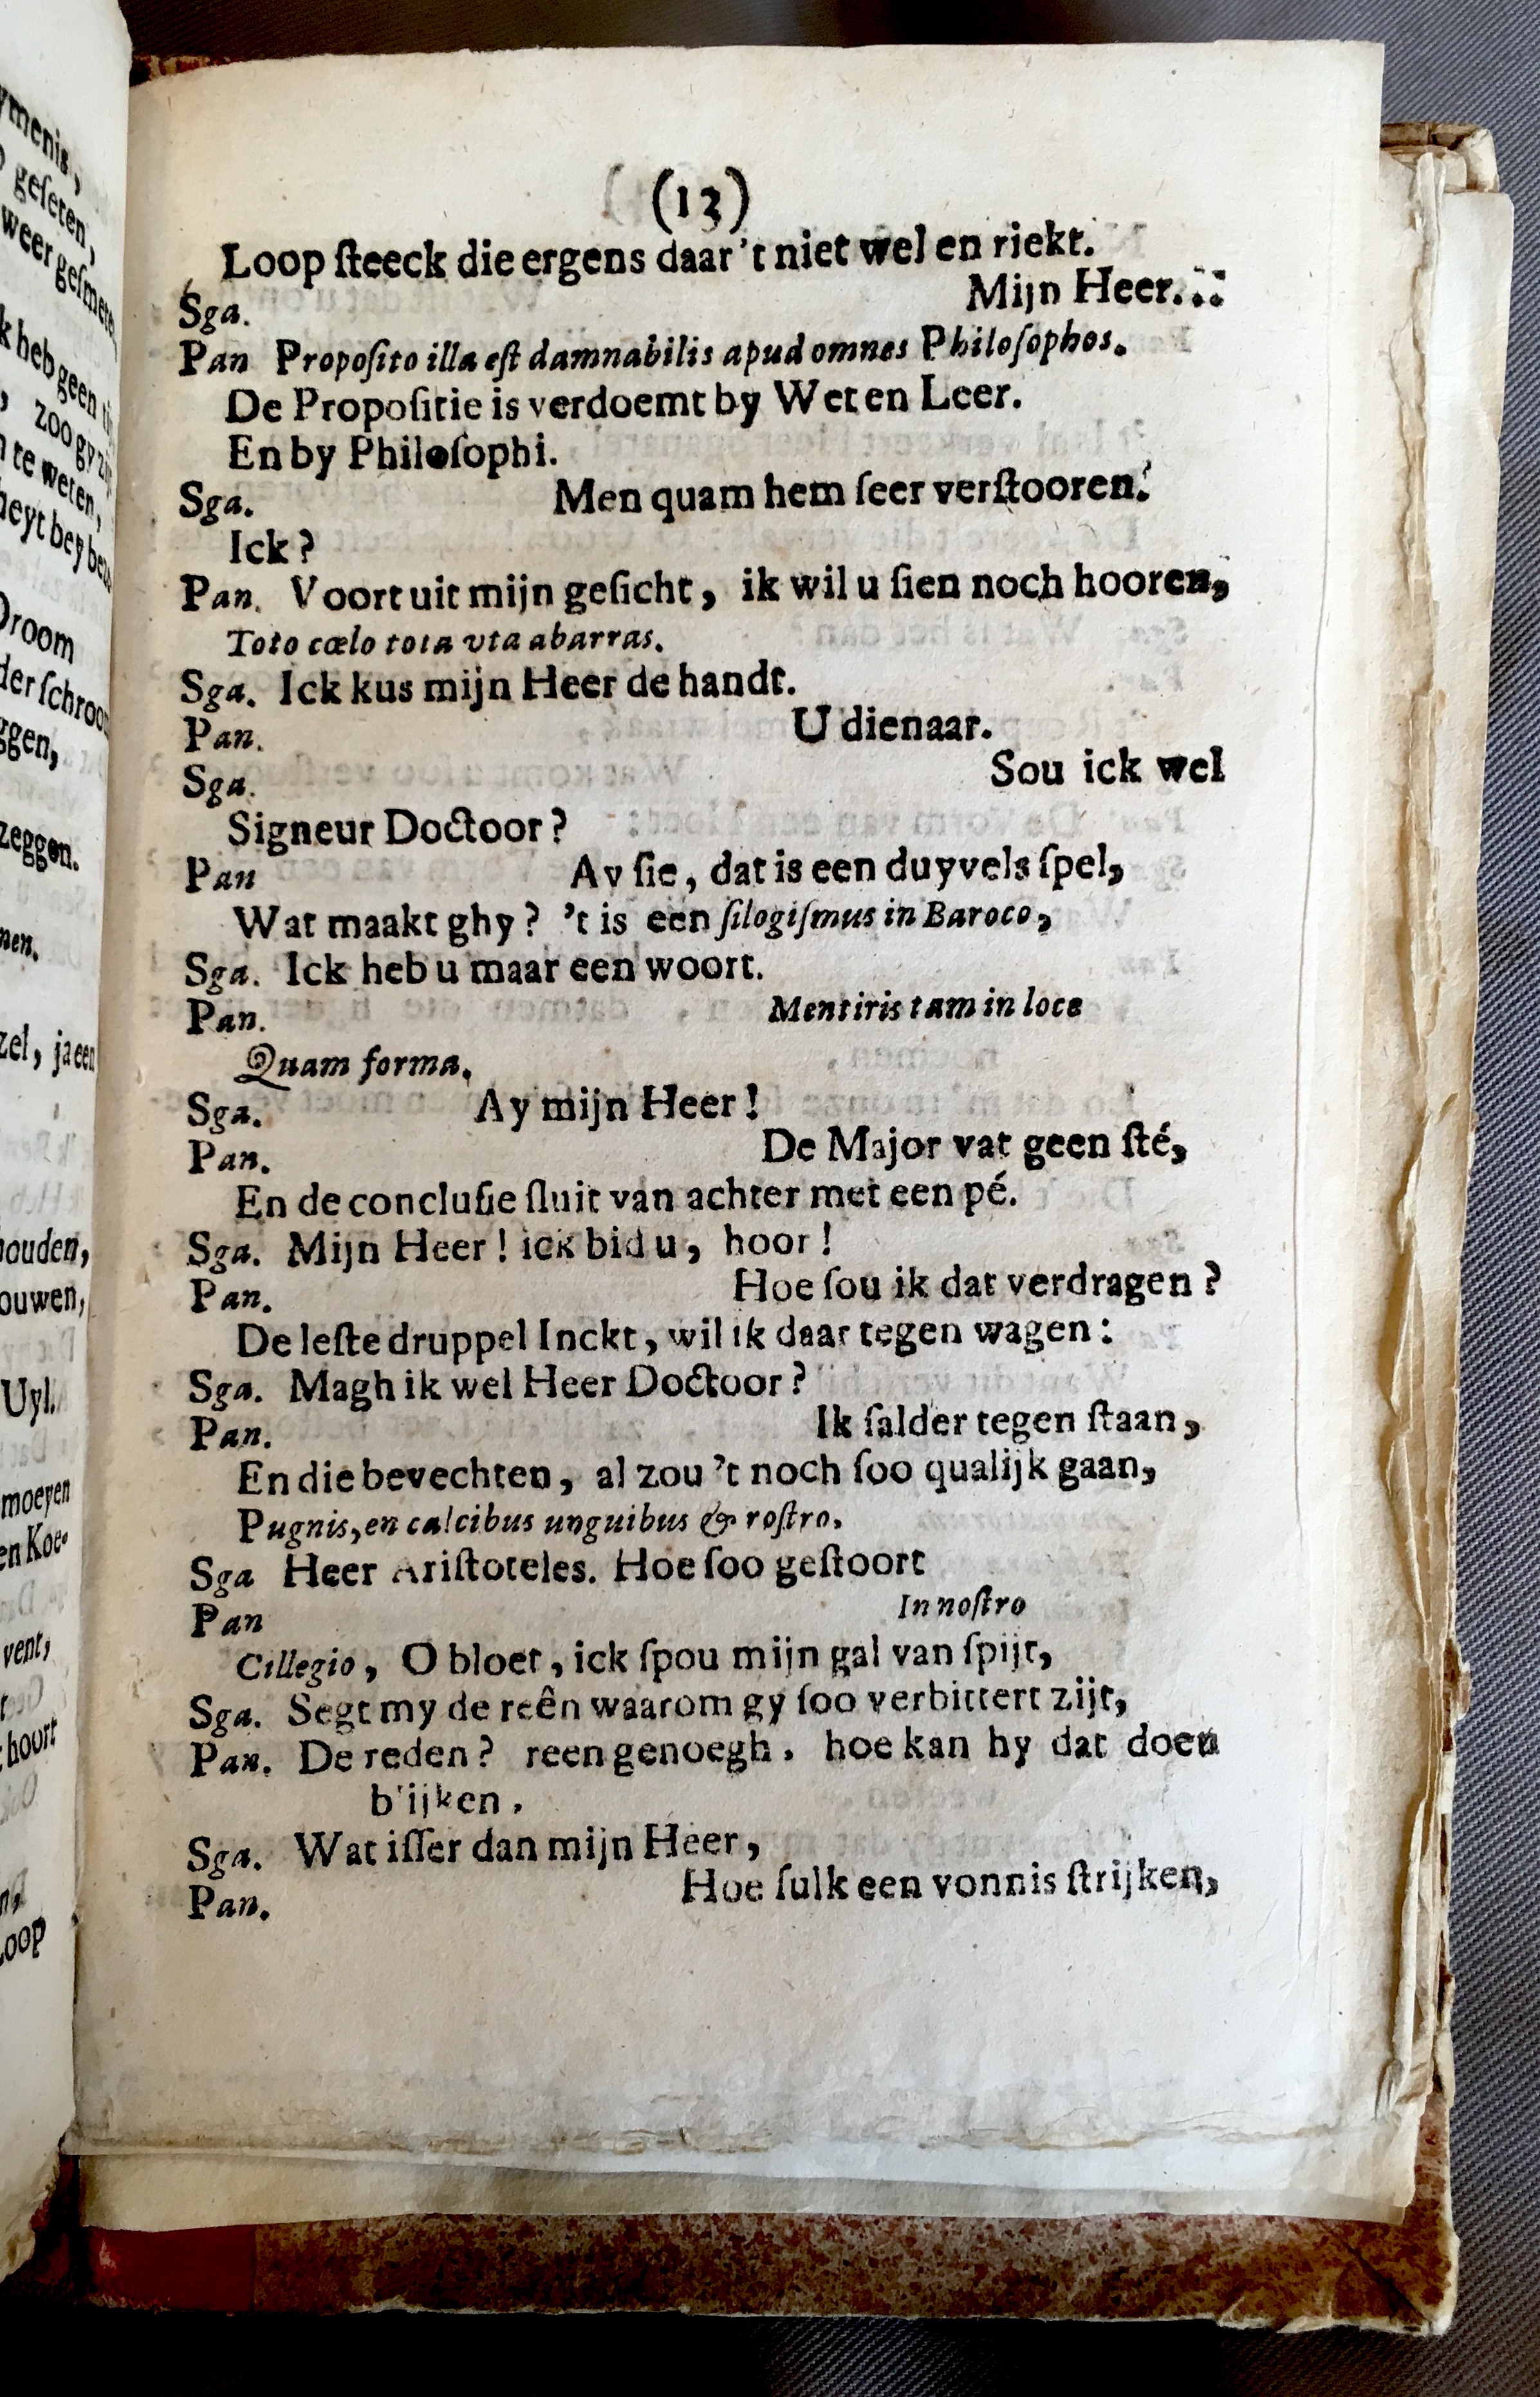 ymenis,
geſeten,
weer geſmete
k heb geen
zoo gy
te weten,
heyt bey
Droom
der ſchroo
ggen,
zeggen.
nen.
zel, ja een
houden,
ouwen,
Uyl.
moeyen
en Koe-
vent,
hoort
Loop
(13)
Loop ſteeck die ergens daar 't niet wel en riekt.
Mijn Heer...
Sga.
Pan Propoſito illa eſt damnabilis apud omnes Philoſophos.
De Propoſitie is verdoemt by Wet en Leer.
En by Philoſophi.
Sga. Men quam hem ſeer verſtooren.
Ick?
Pan. Voort uit mijn geſicht, ik wil u ſien noch hooren,
Toto cœlo tota vta abarras.
Sga. Ick kus mijn Heer de handt.
Pan. U dienaar.
Sga. Sou ick wel
Signeur Doctoor?
Pan Ay ſie, dat is een duyvels ſpel,
Wat maakt ghy? 't is een ſilogiſmus in Baroco,
Sga. Ick heb u maar een woort.
Pan. Mentiris tam in loce
Quam forma.
Sga. Ay mijn Heer!
Pan. De Major vat geen ſté,
En de concluſie ſluit van achter met een pé.
Sga. Mijn Heer! ick bid u, hoor!
Pan. Hoe ſou ik dat verdragen?
De leſte druppel Inckt, wil ik daar tegen wagen:
Sga. Magh ik wel Heer Doctoor?
Pan. Ik ſalder tegen ſtaan,
En die bevechten, al zou 't noch ſoo qualijk gaan,
Pugnis, en calcibus unguibus & roſtro.
Sga Heer Ariſtoteles. Hoe ſoo geſtoort
Pan In noſtro
Cillegio, O bloet, ick ſpou mijn gal van ſpijt,
Sga. Segt my de reên waarom gy ſoo verbittert zijt,
Pan. De reden? reen genoegh. hoe kan hy dat doen
b'ijken.
Sga. Wat iſſer dan mijn Heer,
Pan. Hoe ſulk een vonnis ſtrijken,